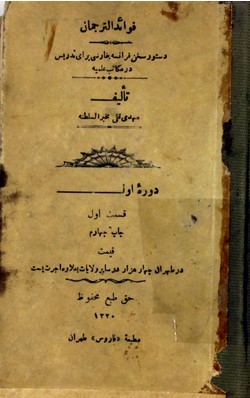 فوائدالترجمان
دستور سخن فرانسه بفارسی برای تدریس
در مکاتب علمیه
تألیف
مهدی قلی مخبرالسلطنه
دورهٔ اول
قسمت اول
چاپ چهارم
قیمت
در طهران چهار هزار در سایر ولایات بعلاوه اجرت پست
حق طبع محفوظ
۱۳۳۰
مطبعهٔ «فاروس» طهران